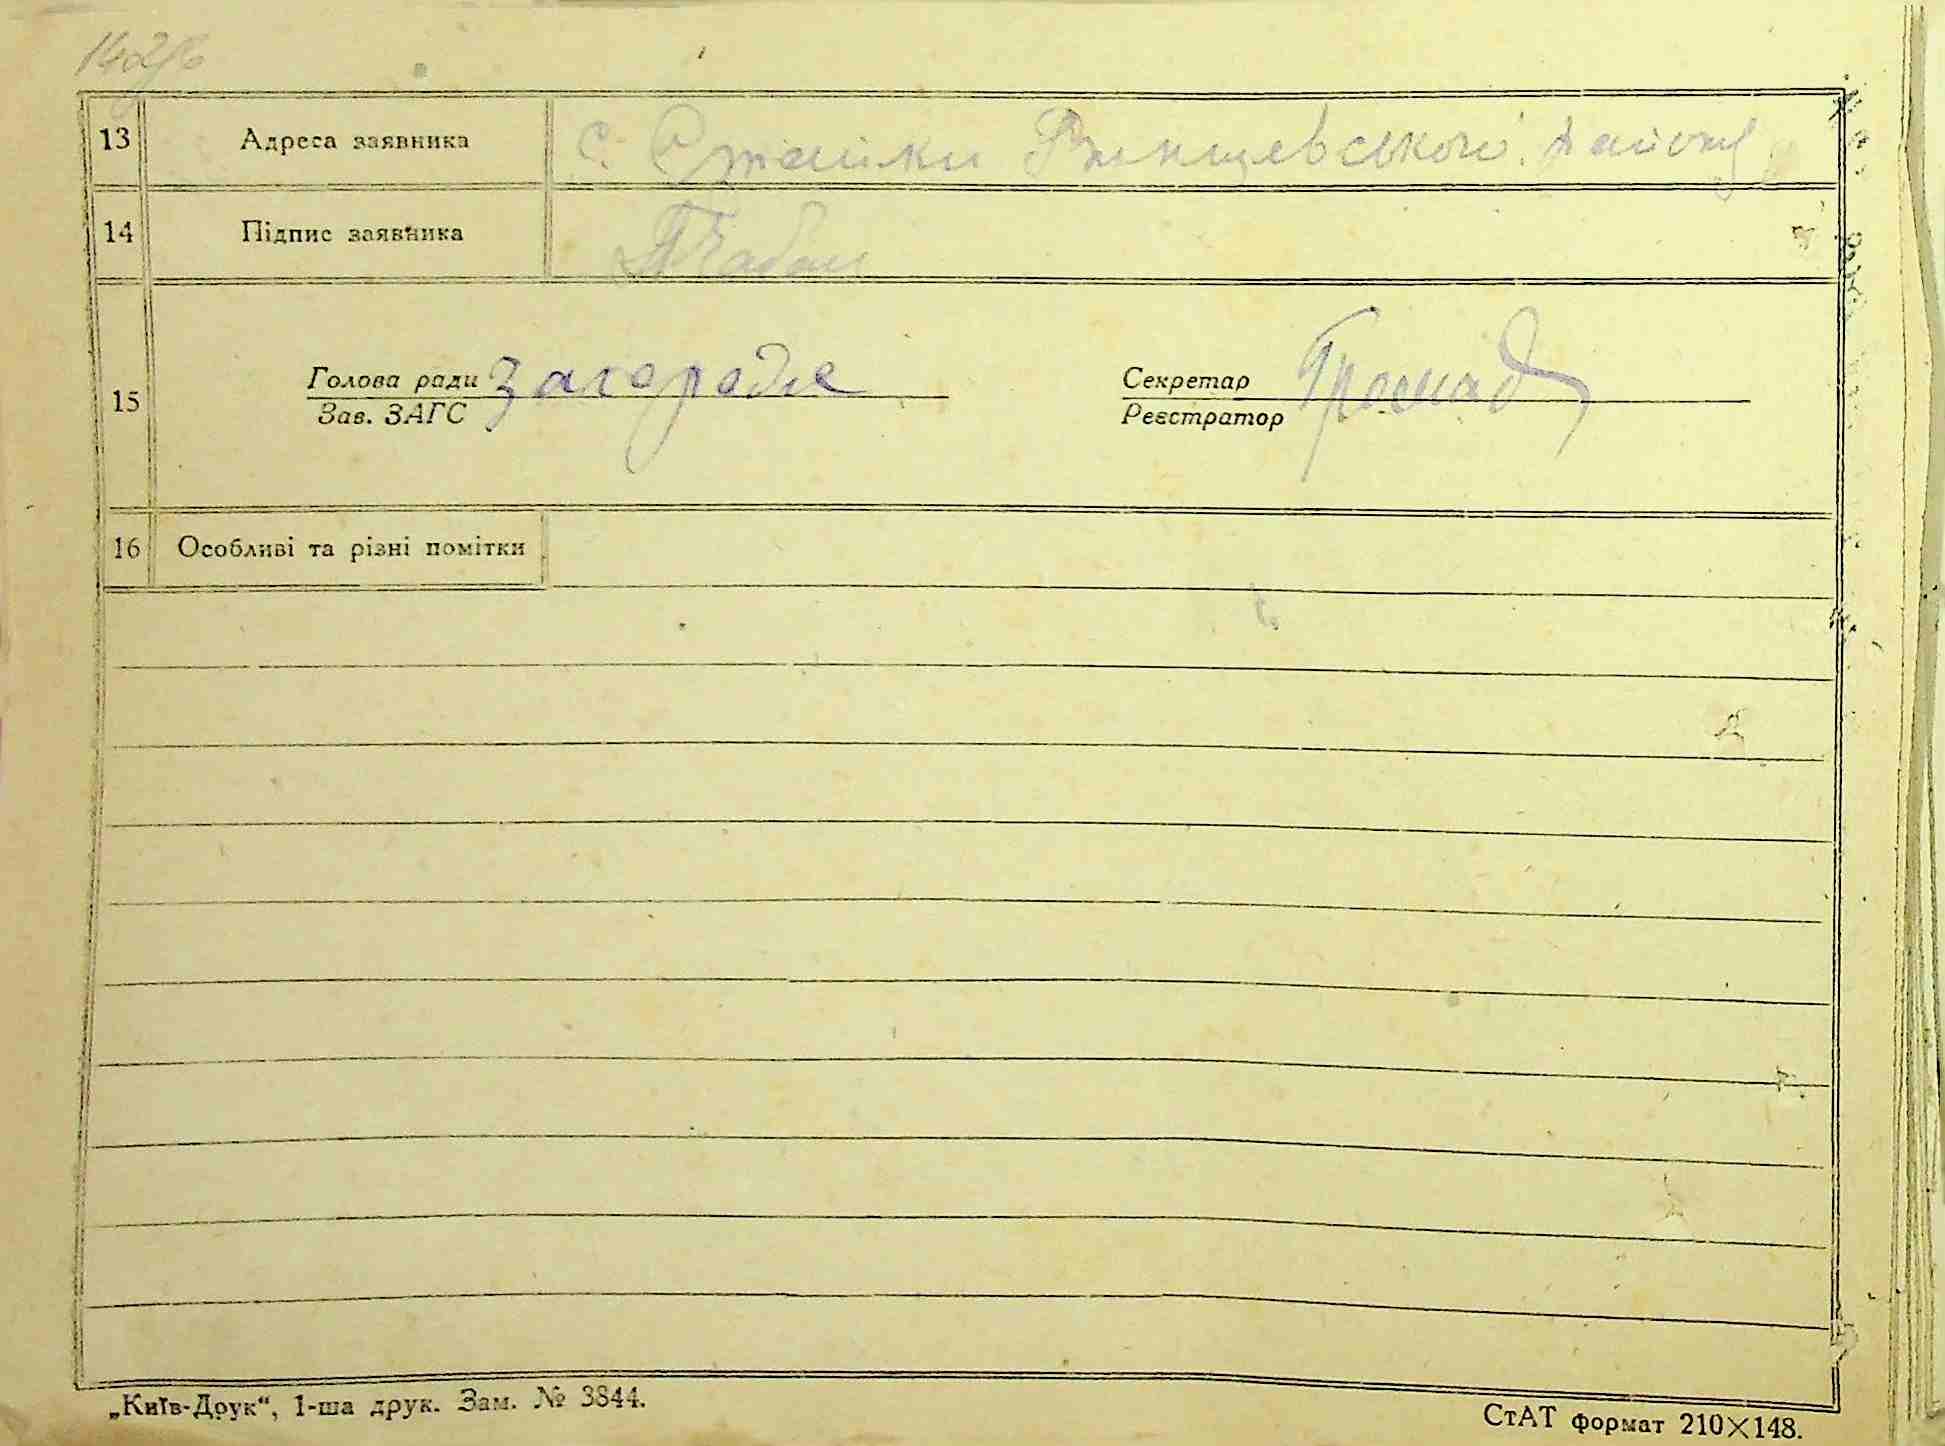 142
13 Адреса заявника с. Стайки Ржищевської району
14 Підпис заявника Чабан
15 Голова ради Загородне Секретар Громад
Зав. ЗАГС Реєстратор
16 Особливі та різні помітки
„Київ-Друк“, 1-ша друк. Зам. № 3844.
СтАТ формат 210×148.